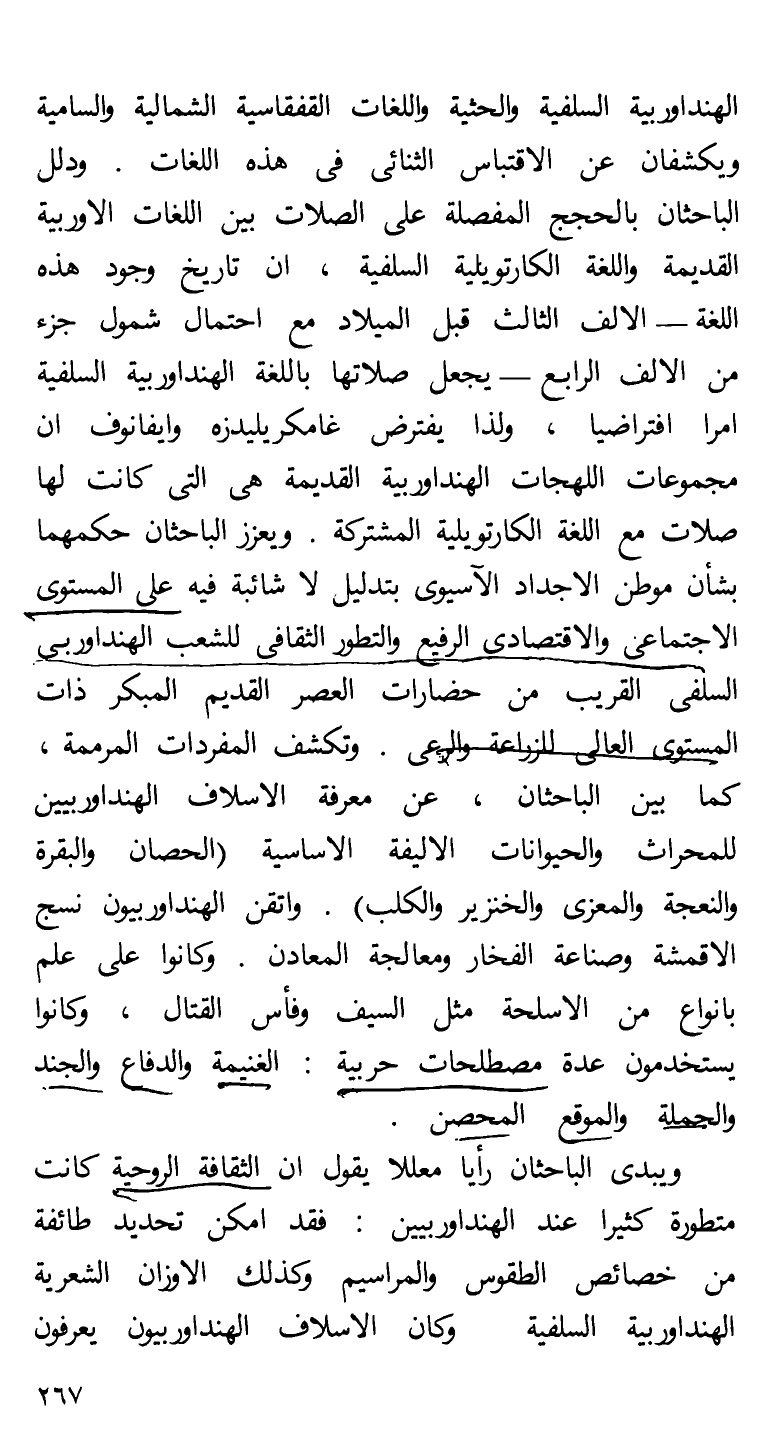 الهنداوربية السلفية والحثية واللغات القفقاسية الشمالية والسامية
ويكشفان عن الاقتباس الثنائى فى هذه اللغات . ودلل
الباحثان بالحجج المفصلة على الصلات بين اللغات الاوربية
القديمة واللغة الكارتويلية السلفية ، ان تاريخ وجود هذه
اللغة — الالف الثالث قبل الميلاد مع احتمال شمول جزء
من الالف الرابع — يجعل صلاتها باللغة الهنداوربية السلفية
امرا افتراضيا ، ولذا يفترض غامكريليدزه وايفانوف ان
مجموعات اللهجات الهنداوربية القديمة هى التى كانت لها
صلات مع اللغة الكارتويلية المشتركة . ويعزز الباحثان حكمهما
بشأن موطن الاجداد الآسيوى بتدليل لا شائبة فيه على المستوى
الاجتماعى والاقتصادى الرفيع والتطور الثقافى للشعب الهنداوربى
السلفى القريب من حضارات العصر القديم المبكر ذات
المستوى العالى للزراعة والرعى . وتكشف المفردات المرممة ،
كما بين الباحثان ، عن معرفة الاسلاف الهنداوربيين
للمحراث والحيوانات الاليفة الاساسية (الحصان والبقرة
والنعجة والمعزى والخنزير والكلب) . واتقن الهنداوربيون نسج
الاقمشة وصناعة الفخار ومعالجة المعادن . وكانوا على علم
بانواع من الاسلحة مثل السيف وفأس القتال ، وكانوا
يستخدمون عدة مصطلحات حربية : الغنيمة والدفاع والجند
والحملة والموقع المحصن .
ويبدى الباحثان رأيا معللا يقول ان الثقافة الروحية كانت
متطورة كثيرا عند الهنداوربيين : فقد امكن تحديد طائفة
من خصائص الطقوس والمراسيم وكذلك الاوزان الشعرية
الهنداوربية السلفية وكان الاسلاف الهنداوربيون يعرفون
٢٦٧